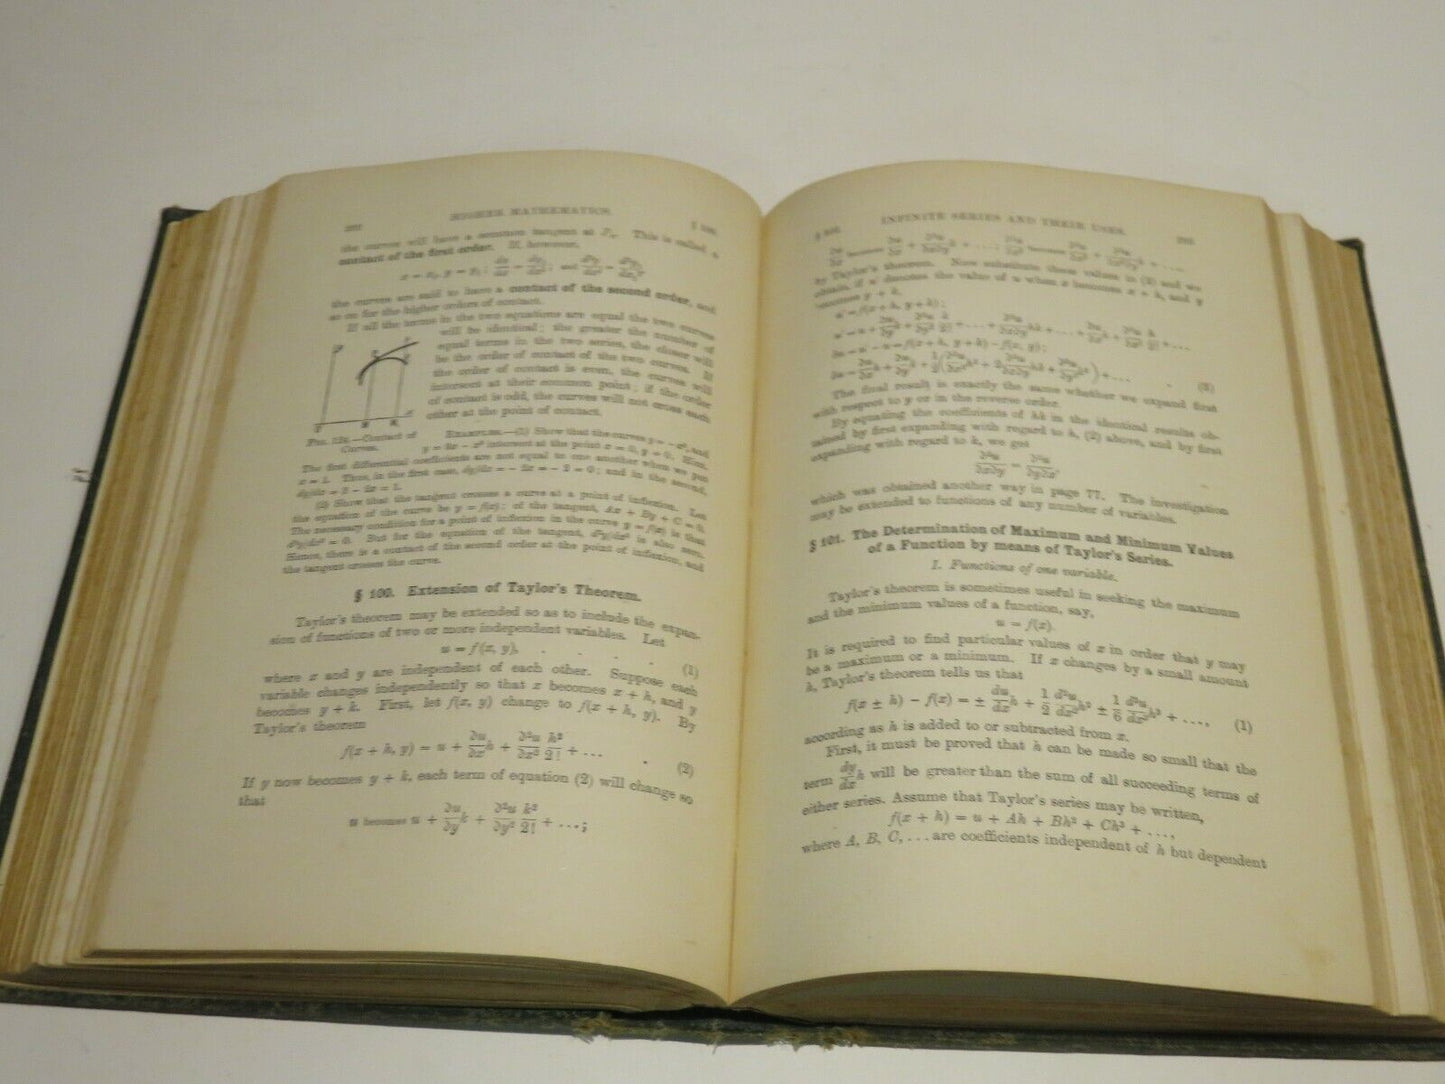 HIGHER MATHEMATICS.
§ 100.
the curves will have a common tangent at P₁. This is called a
contact of the first order. If, however,
the curves are said to have a contact of the second order, and
so on for the higher orders of contact.
If all the terms in the two equations are equal the two curves
will be identical; the greater the number of
equal terms in the two series, the closer will
be the order of contact of the two curves. If
the order of contact is even, the curves will
intersect at their common point; if the order
of contact is odd, the curves will not cross each
other at the point of contact.
Contact of
Curves.
EXAMPLES.—(1) Show that the curves y = − x², and
y = 3x − x² intersect at the point x = 0, y = 0.
The first differential coefficients are not equal to one another when we put
(2) Show that the tangent crosses a curve at a point of inflexion. Let
the equation of the curve be y = f(x); of the tangent, Ax + By + C = 0.
The necessary condition for a point of inflexion in the curve y = f(x) is that
d²y/dx² = 0. But for the equation of the tangent, d²y/dx² is also zero.
Hence, there is a contact of the second order at the point of inflexion, and
the tangent crosses the curve.
§ 100. Extension of Taylor's Theorem.
Taylor's theorem may be extended so as to include the expan-
sion of functions of two or more independent variables. Let
u = f(x, y), . . . . (1)
where x and y are independent of each other. Suppose each
variable changes independently so that x becomes x + h, and y
becomes y + k. First, let f(x, y) change to f(x + h, y). By
Taylor's theorem
f(x + h, y) = u + ∂u/∂x h + ∂²u/∂x² h²/2! + ... . (2)
If y now becomes y + k, each term of equation (2) will change so
that
u becomes u + ∂u/∂y k + ∂²u/∂y² k²/2! + ...;
INFINITE SERIES AND THEIR USES.
by Taylor's theorem. Now substitute these values in (2) and we
obtain, if u′ denotes the value of u when x becomes x + h, and y
becomes y + k,
u′ = f(x + h, y + k);
δu = u′ − u = f(x + h, y + k) − f(x, y);
The final result is exactly the same whether we expand first
with respect to y or in the reverse order.
By equating the coefficients of hk in the identical results ob-
tained by first expanding with regard to h, (2) above, and by first
expanding with regard to k, we get
∂²u/∂x∂y = ∂²u/∂y∂x,
which was obtained another way in page 77. The investigation
may be extended to functions of any number of variables.
§ 101. The Determination of Maximum and Minimum Values
of a Function by means of Taylor's Series.
I. Functions of one variable.
Taylor's theorem is sometimes useful in seeking the maximum
and the minimum values of a function, say,
u = f(x).
It is required to find particular values of x in order that y may
be a maximum or a minimum. If x changes by a small amount
h, Taylor's theorem tells us that
f(x ± h) − f(x) = ± du/dx h + 1/2 d²u/dx² h² ± 1/6 d³u/dx³ h³ + ..., (1)
according as h is added to or subtracted from x.
First, it must be proved that h can be made so small that the
term dy/dx h will be greater than the sum of all succeeding terms of
either series. Assume that Taylor's series may be written,
f(x + h) = u + Ah + Bh² + Ch³ + ...,
where A, B, C, ... are coefficients independent of h but dependent